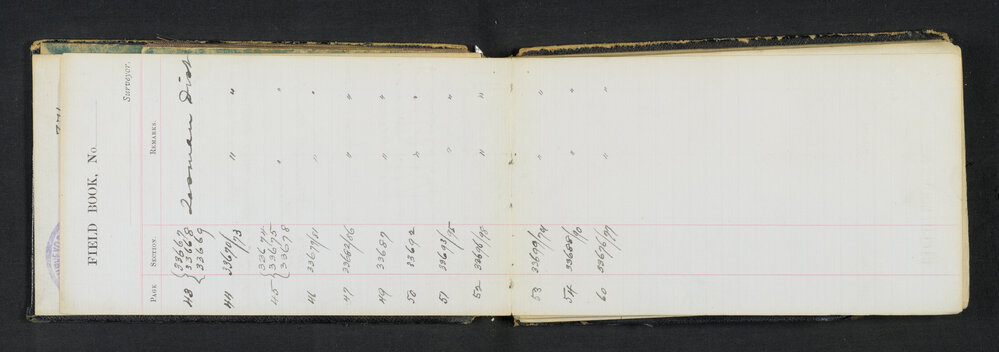 FIELD BOOK, No
Surveyor.
PAGE SECTION. REMARKS.
43 { 33667 Dist
33668
33669
44 33670/73 " "
45 { 33674 " "
33675
33678
46 33679/81 " "
47 33682/86 " "
49 33687 " "
50 33692 " "
51 33693/95 " "
52 33696/98 " "
53 " "
54 33688/90 " "
60 " "